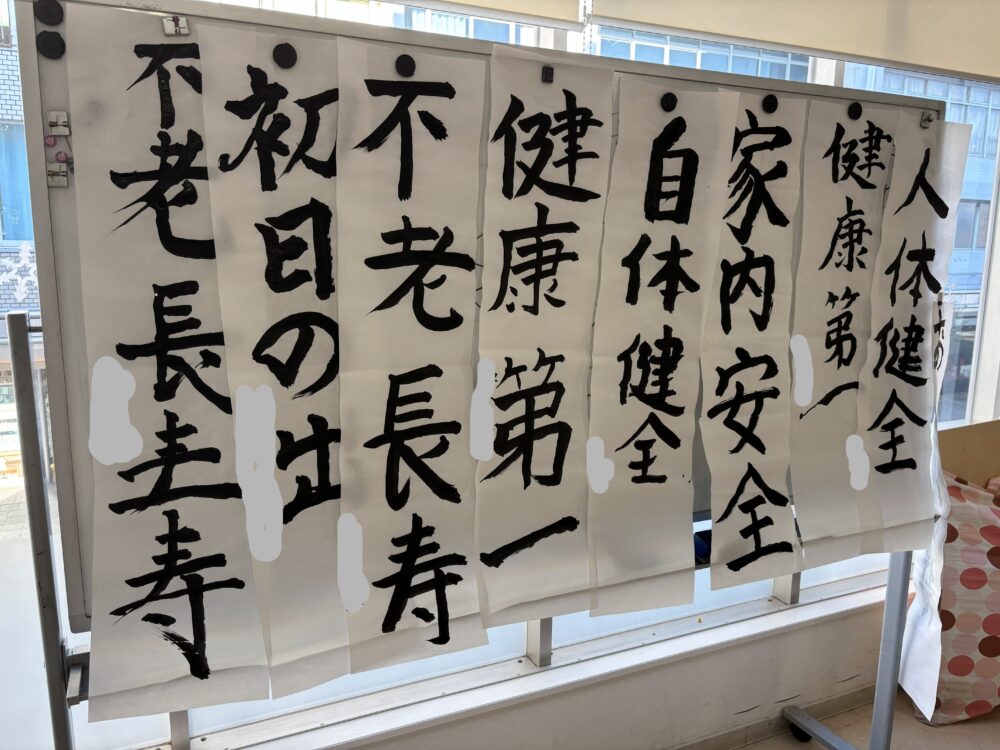 人体健全
健康第一
家内安全
自体健全
健康第一
不老長寿
初日の出
不老長寿